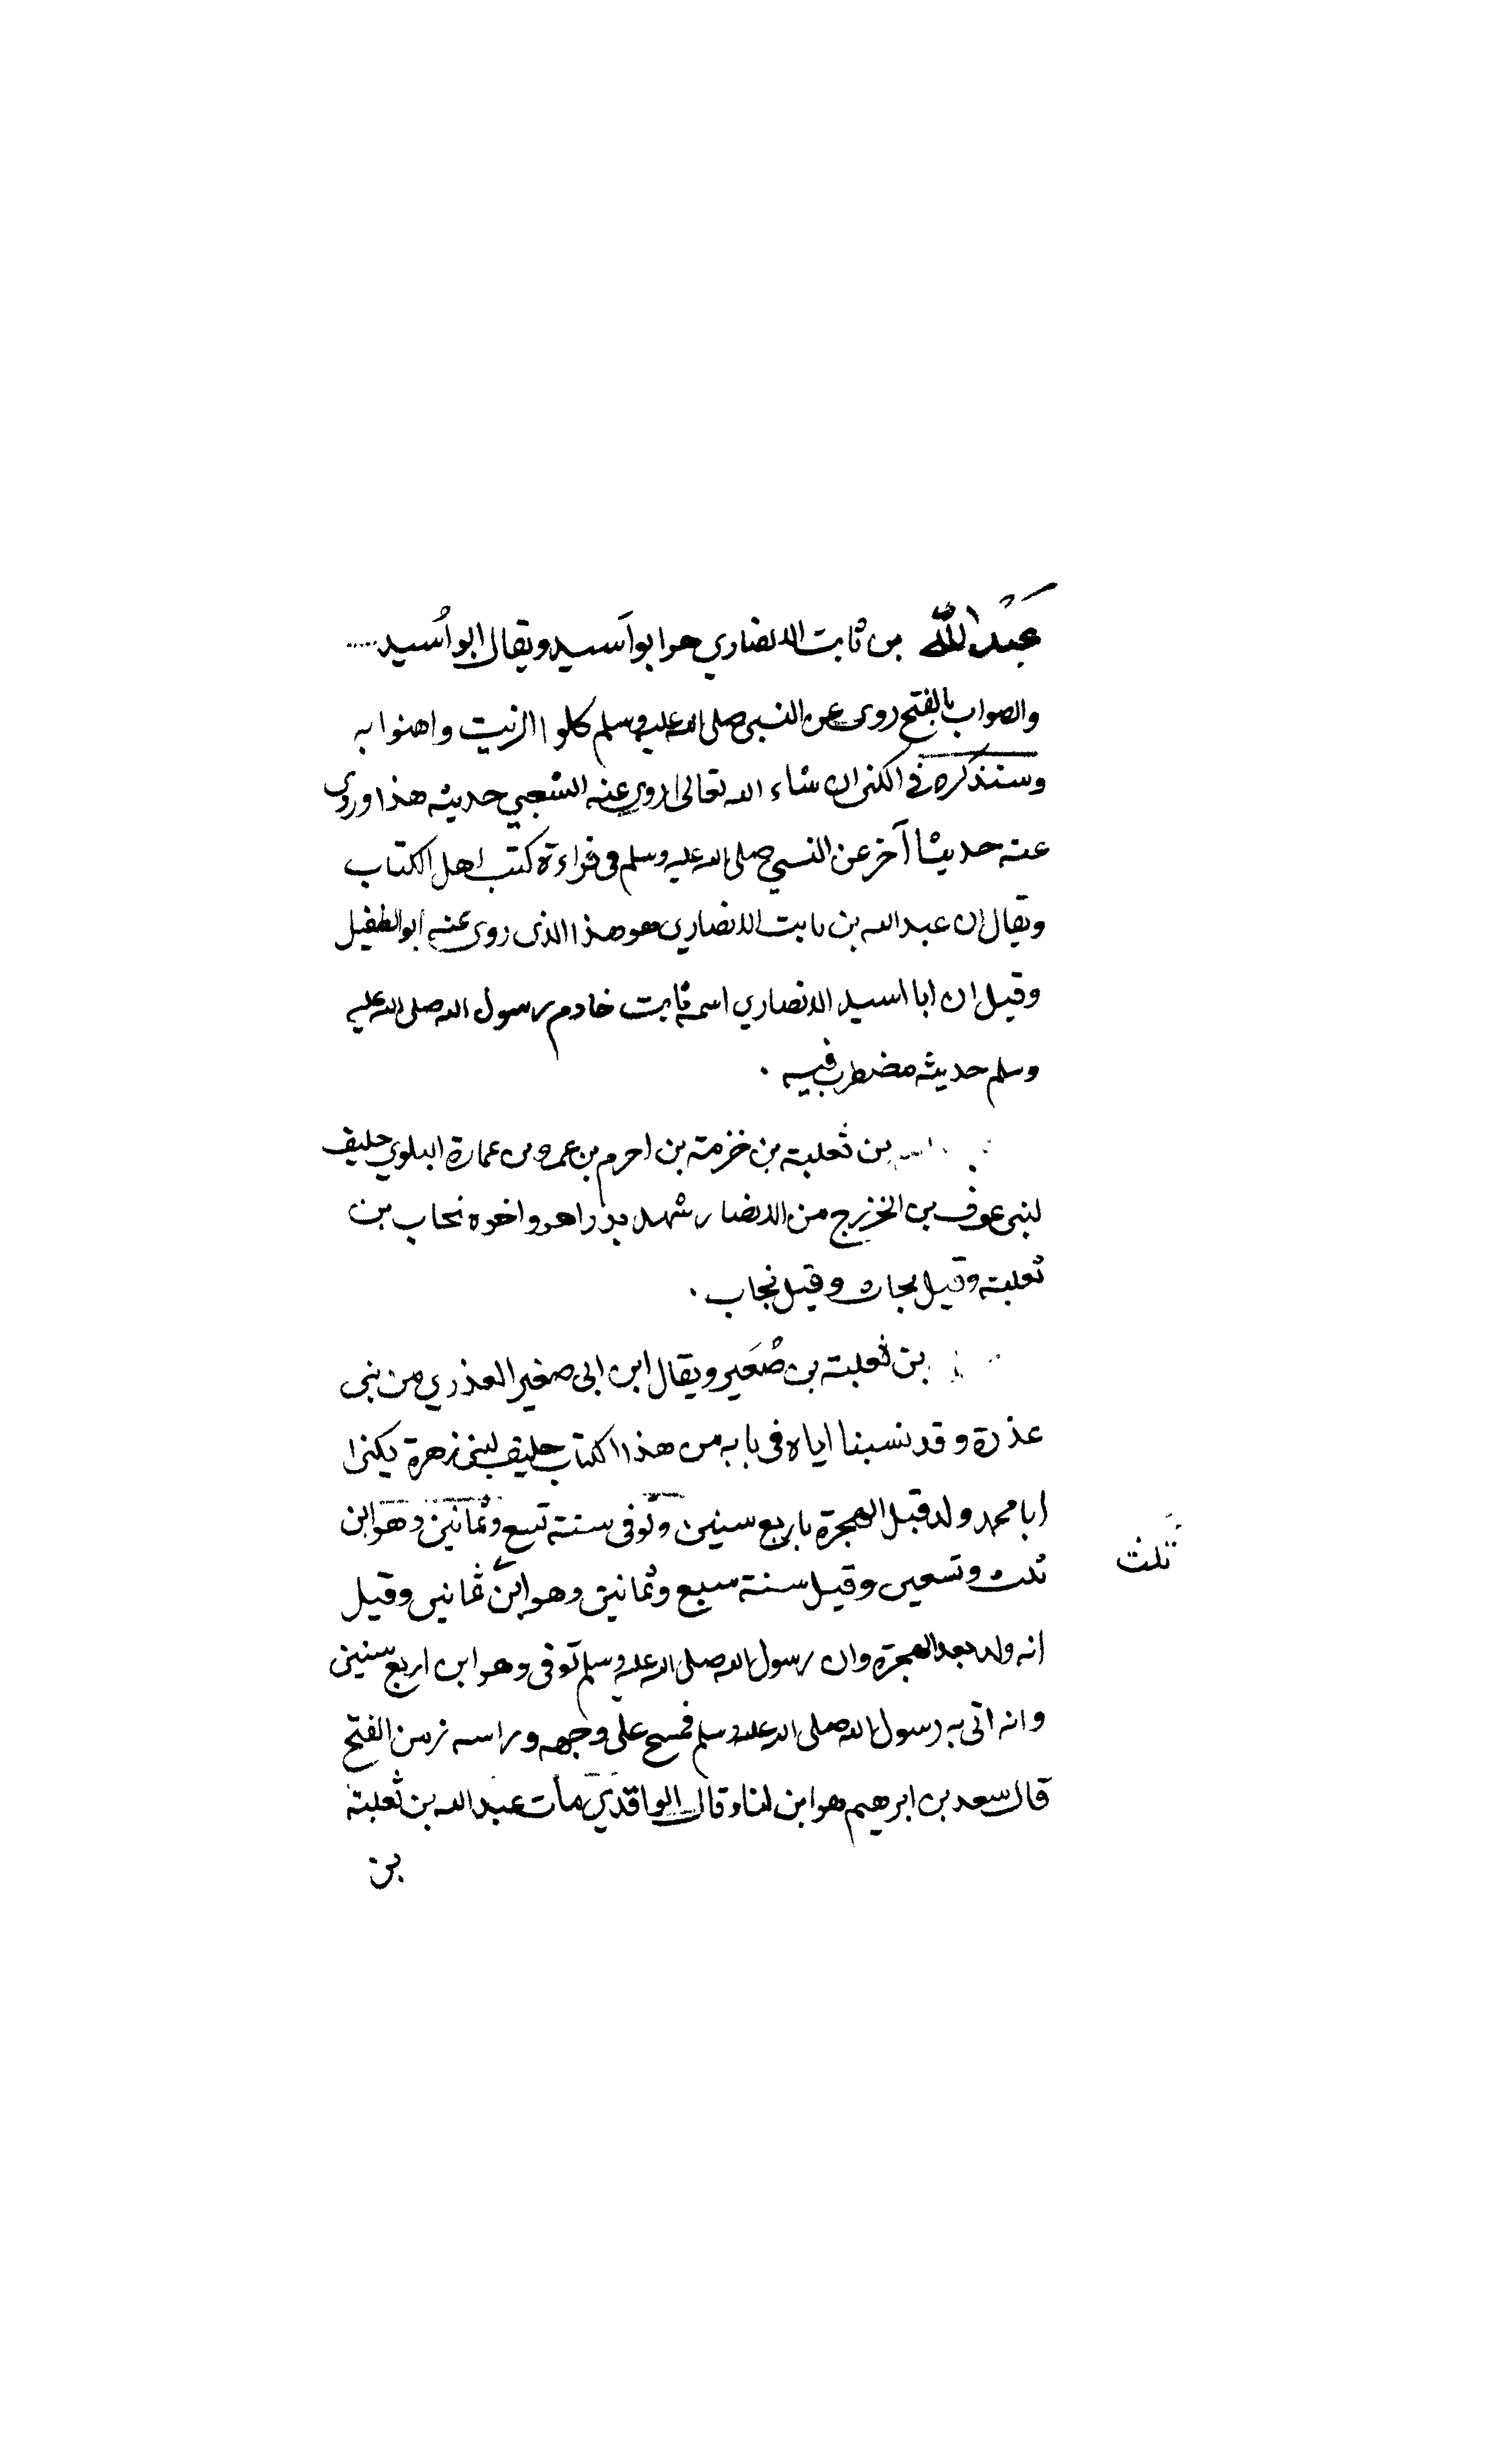 عبد الله بن ثابت الانصاري هو ابو اَسيد ويقال ابو اُسيد
والصواب بالفتح روى عن النبي صلى الله عليه وسلم كلوا الزيت وادهنوا به
وسنذكره في الكنى ان شاء الله تعالى روى عنه الشعبي حديثه هذا وروى
عنه حديثا آخر عن النبي صلى الله عليه وسلم في قراءة كتب اهل الكتاب
ويقال ان عبد الله بن ثابت الانصاري هو هذا الذى روى عنه ابو الطفيل
وقيل ان ابا اسيد الانصاري اسمه ثابت خادم رسول الله صلى الله عليه
وسلم حديثه مضطرب فيه .
بن ثعلبة بن خزمة بن اصرم بن عمرو بن عمارة البلوي حليف
لبنى عوف بن الخزرج من الانصار شهد بدرا هو واخوه نحاب بن
ثعلبة وقيل بحاث وقيل نجاب .
بن ثعلبة بن صُعَير ويقال ابن ابى صغير العذري من بنى
عذرة وقد نسبنا اياه فى بابه من هذا الكتاب حليف لبنى زهرة يكنى
ابا محمد ولد قبل الهجرة باربع سنين وتوفى سنة تسع وثمانين وهو ابن
ثلث وتسعين وقيل سنة سبع وثمانين وهو ابن ثمانين وقيل
ثلث
انه ولد بعد الهجرة وان رسول الله صلى الله عليه وسلم توفى وهو ابن اربع سنين
وانه اتى به رسول الله صلى الله عليه وسلم فمسح على وجهه وراسه زمن الفتح
قال سعد بن ابرهيم هو ابن لنا وقال الواقدي مات عبد الله بن ثعلبة
بن